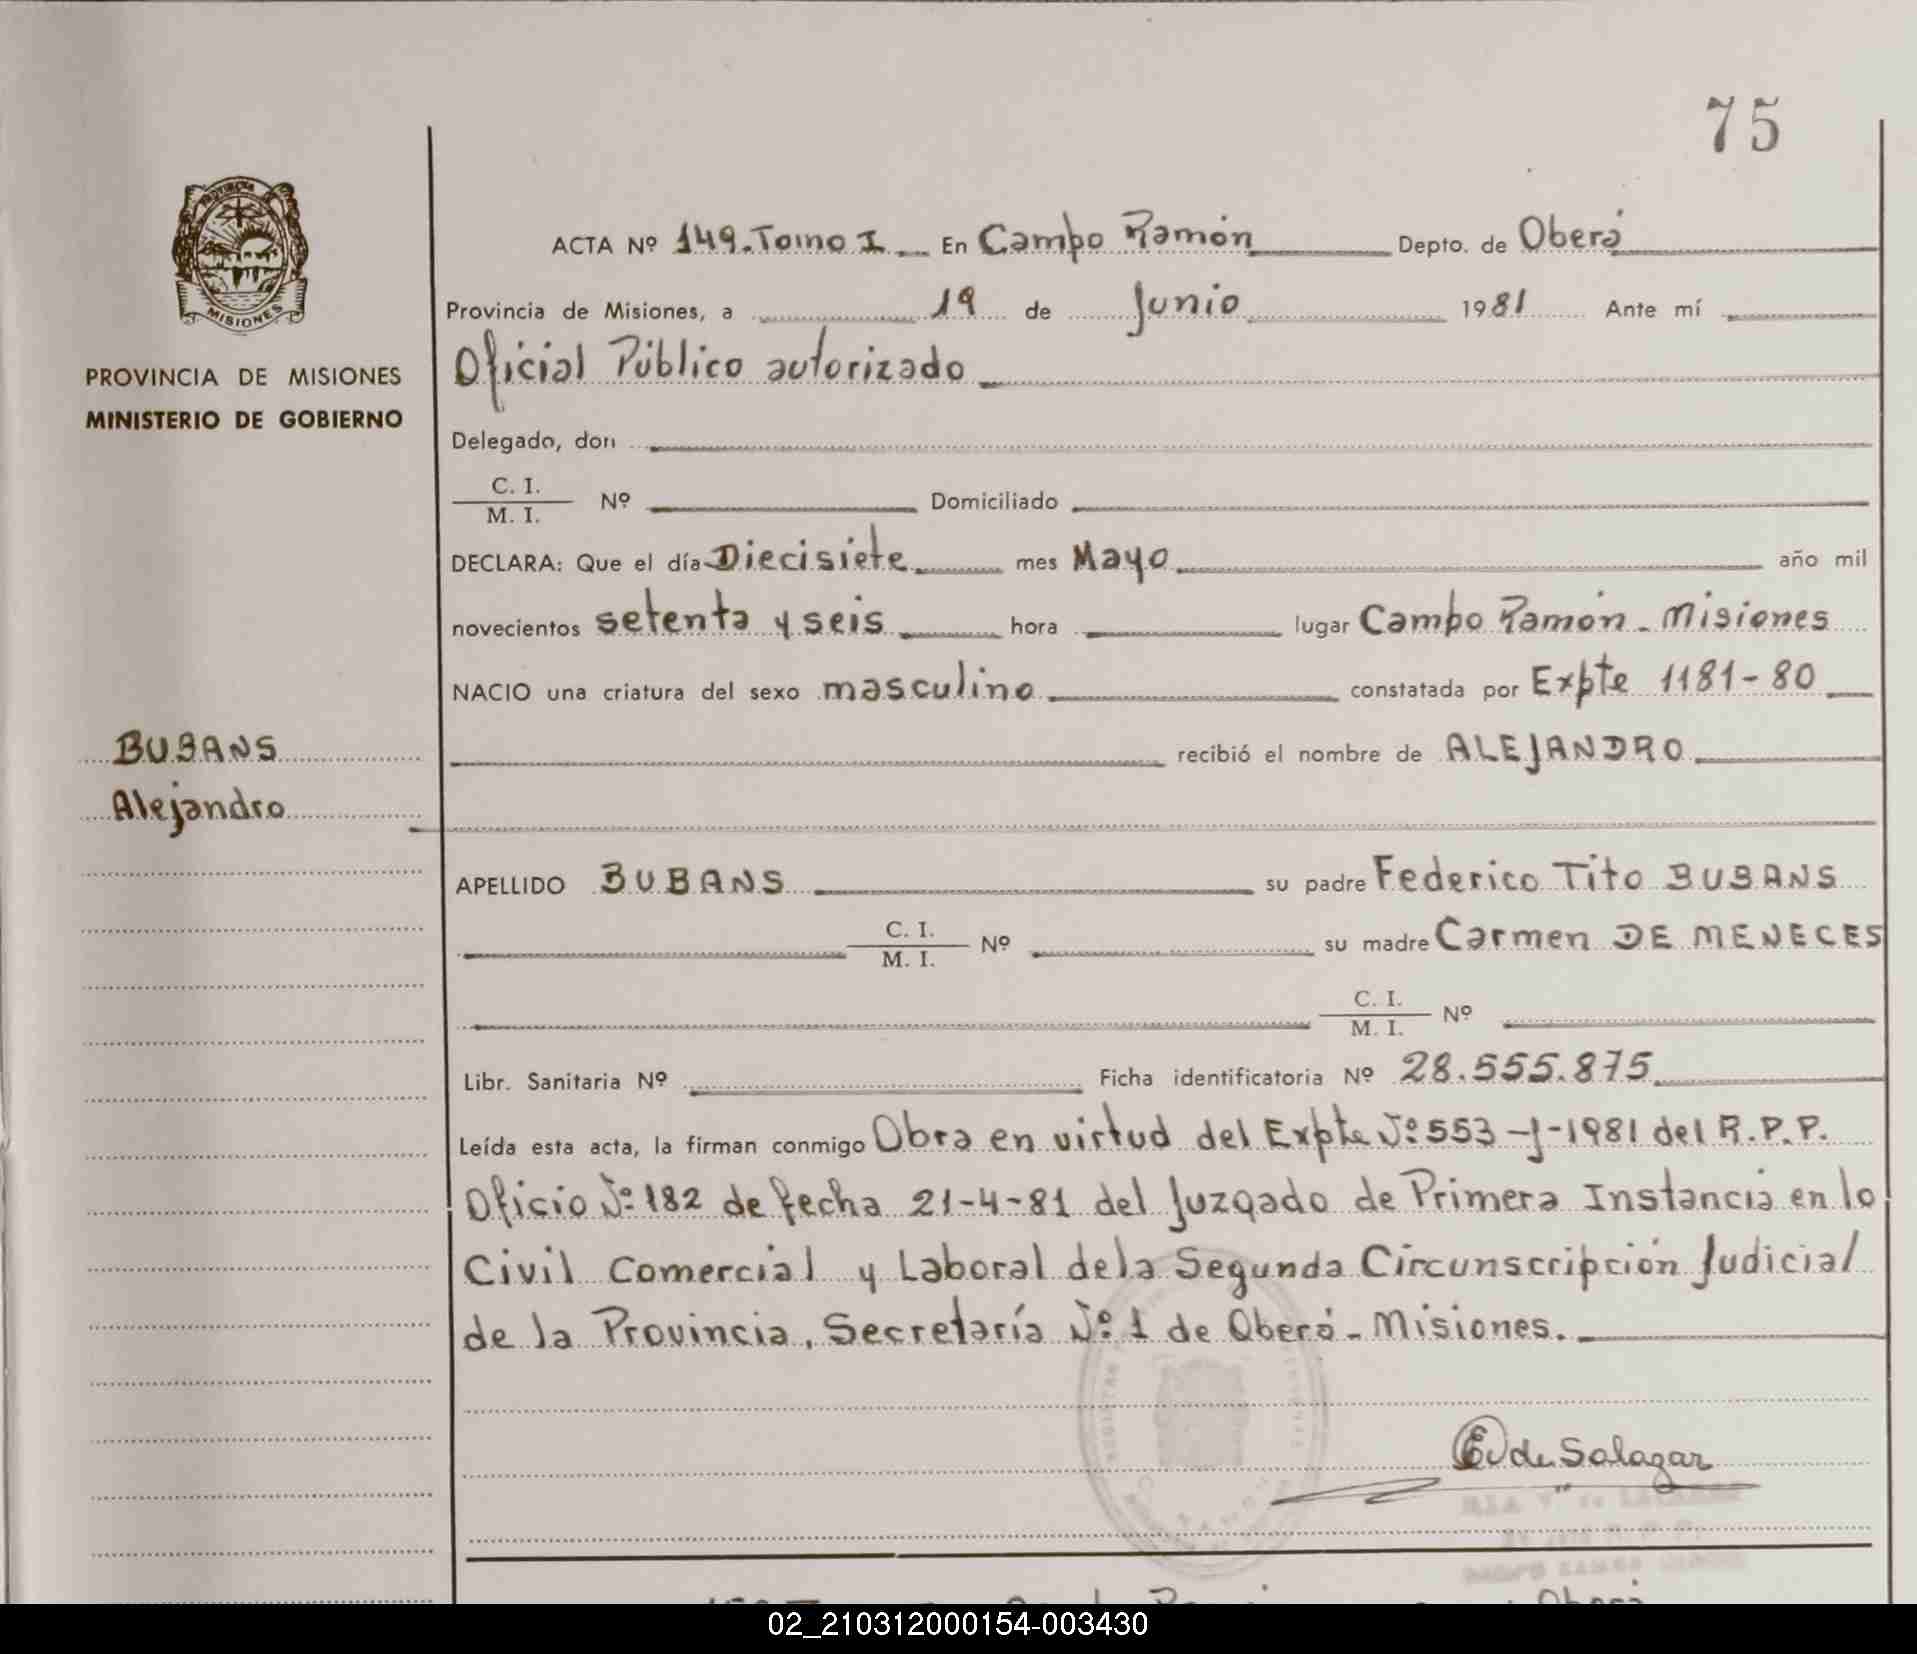 75
PROVINCIA
MISIONES
PROVINCIA DE MISIONES
MINISTERIO DE GOBIERNO
BUBANS
Alejandro
ACTA Nº 149. Tomo I En Campo Ramón Depto. de Oberá
Provincia de Misiones, a 19 de Junio 1981 Ante mí
Oficial Público autorizado
Delegado, don
C. I.
M. I. Nº Domiciliado
DECLARA: Que el día Diecisiete mes Mayo año mil
novecientos setenta y seis hora lugar Campo Ramón - Misiones
NACIO una criatura del sexo masculino constatada por Expte 1181-80
recibió el nombre de ALEJANDRO
APELLIDO BUBANS su padre Federico Tito BUBANS
C. I.
M. I. Nº su madre Carmen DE MENECES
C. I.
M. I. Nº
Libr. Sanitaria Nº Ficha identificatoria Nº 28.555.875
Leída esta acta, la firman conmigo Obra en virtud del Expte Nº 553-J-1981 del R.P.P.
Oficio Nº 182 de fecha 21-4-81 del Juzgado de Primera Instancia en lo
Civil Comercial y Laboral de la Segunda Circunscripción Judicial
de la Provincia, Secretaría Nº 1 de Oberá - Misiones.
E V de Salazar
02_210312000154-003430